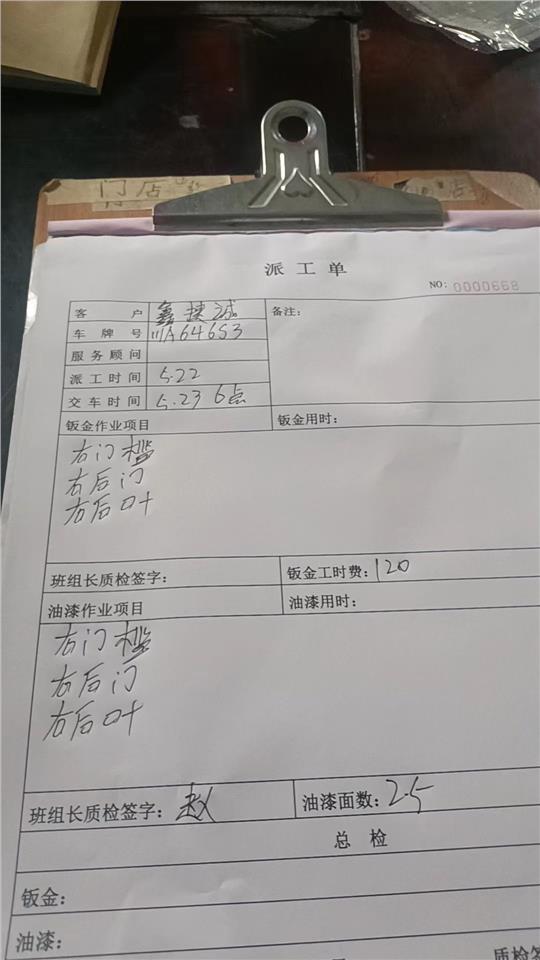 门店
店
派工单
NO: 0000668
客户 鑫捷诚 备注:
车牌号 川A646S3
服务顾问
派工时间 5.22
交车时间 5.23 6点
钣金作业项目 钣金用时:
右门槛
右后门
右后叶
班组长质检签字: 钣金工时费: 120
油漆作业项目 油漆用时:
右门槛
右后门
右后叶
班组长质检签字: 赵 油漆面数: 2.5
总检
钣金:
油漆:
质检签